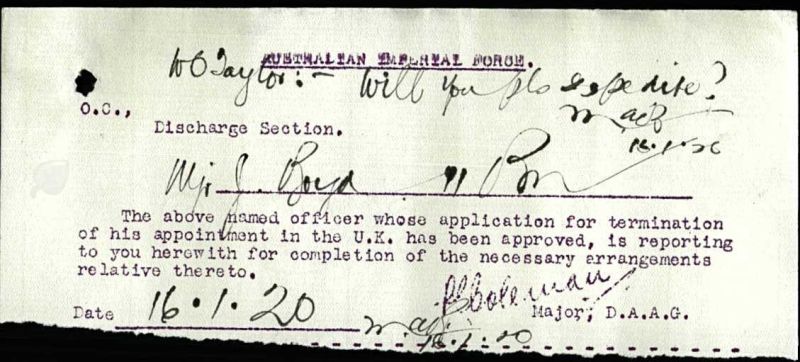 AUSTRALIAN IMPERIAL FORCE.
WO Taylor:- Will you pls expedite?
16.1.20
O.C.,
Discharge Section.
Mjr J. Boyd 11 Bn
The above named officer whose application for termination
of his appointment in the U.K. has been approved, is reporting
to you herewith for completion of the necessary arrangements
relative thereto.
Coleman
Date 16.1.20 Major, D.A.A.G.
16.1.20